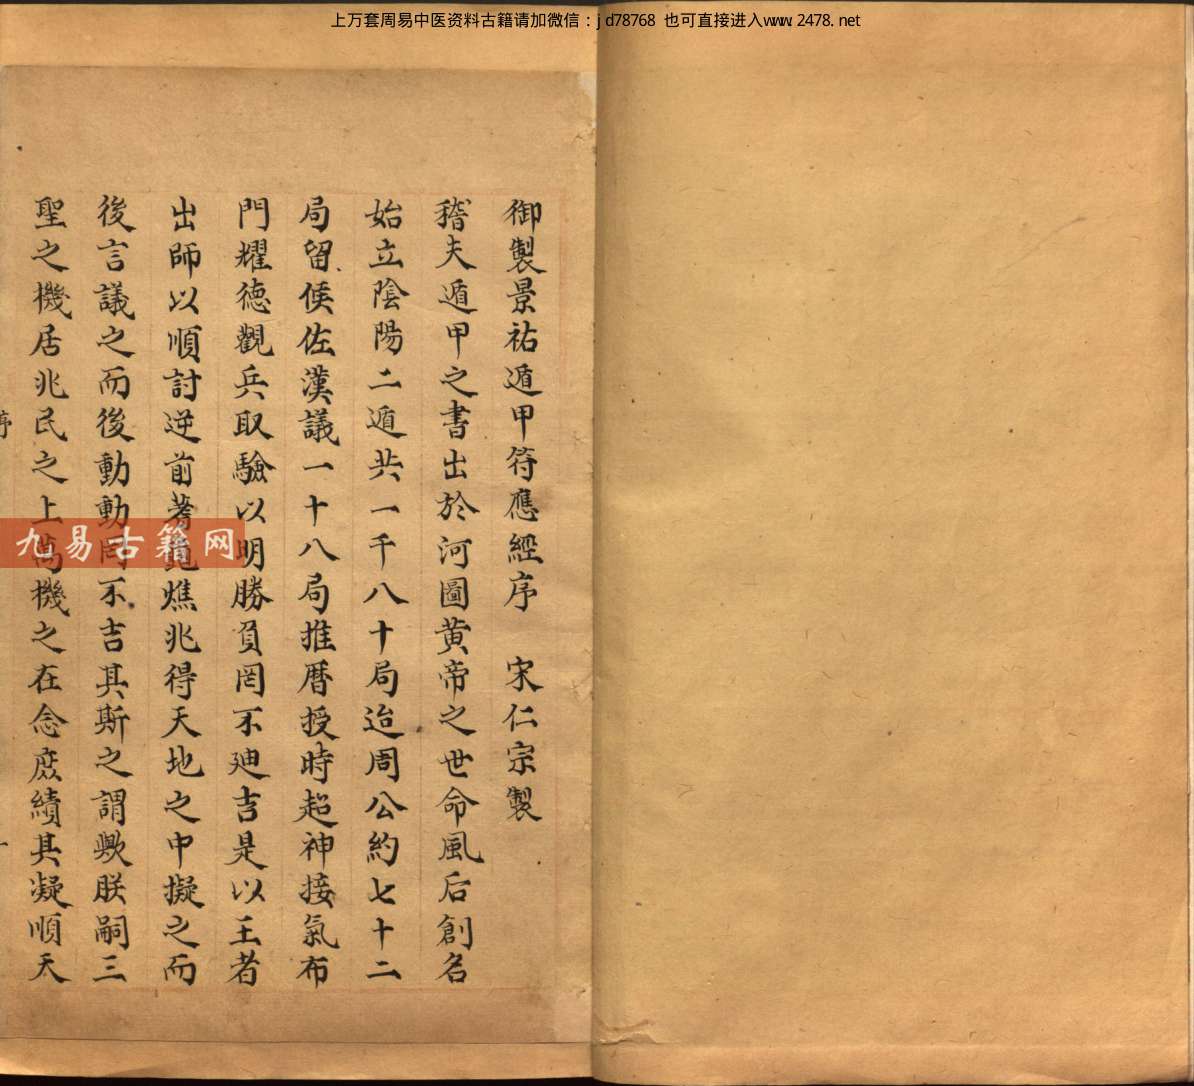 上万套周易中医资料古籍请加微信：jd78768 也可直接进入www.2478.net
御製景祐遁甲符應經序　宋仁宗製
稽夫遁甲之書出於河圖黄帝之世命風后創名
始立陰陽二遁共一千八十局迨周公約七十二
局留侯佐漢議一十八局推曆授時超神接氣布
門耀德觀兵取驗以明勝負罔不廸吉是以王者
出師以順討逆前蓍龜燋兆得天地之中擬之而
後言議之而後動動罔不吉其斯之謂歟朕嗣三
聖之機居兆民之上萬機之在念庶績其凝順天
序
九易古籍网